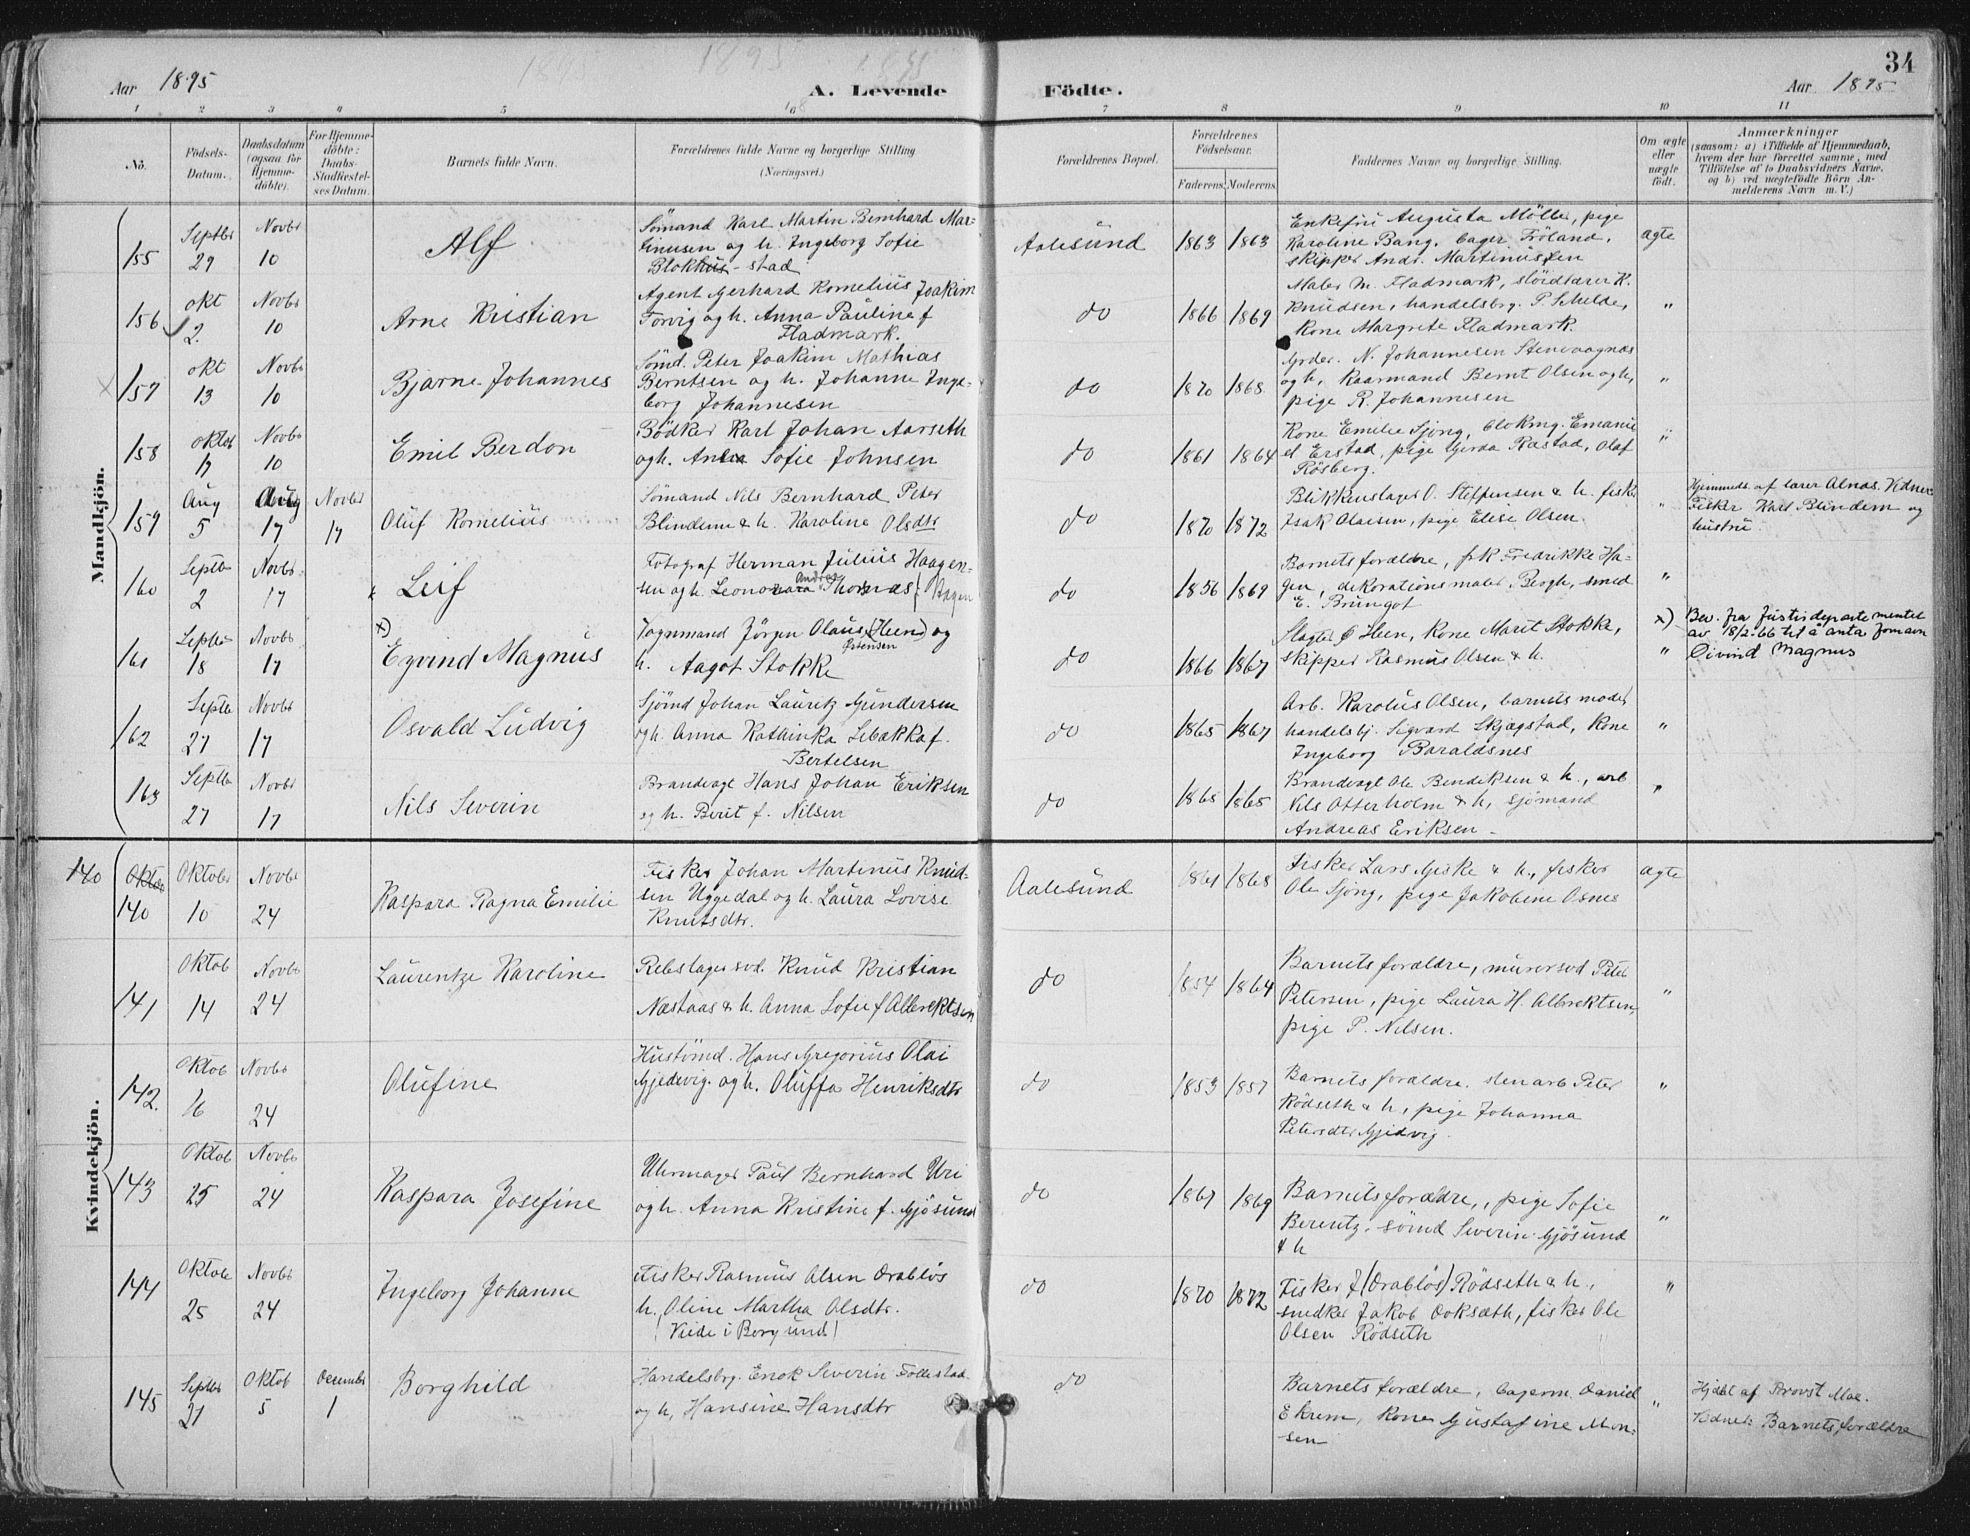 34
Aar 1895
A. Levende Födte.
Aar 1895
1 2 3 4 5 6 7 8 9 10 11
No.
Födsels-Datum.
Daabsdatum (ogsaa for Hjemme-döbte).
For Hjemme-döbte: Daabs-Stadfæstel-ses Datum.
Barnets fulde Navn.
Forældrenes fulde Navne og borgerlige Stilling (Næringsvei.)
Forældrenes Bopæl.
Forældrenes Födselsaar.
Faderens. Moderens.
Faddernes Navne og borgerlige Stilling.
Om ægte eller uægte födt.
Anmærkninger
(saasom: a) i Tilfælde af Hjemmedaab,
hvem der har forrettet samme, med
Tilföielse af to Daabsvidners Navne,
og b) ved uægtefödte Börn An-
melderens Navn m. V.)
Mandkjön.
155 Septbr 29 Novbr 10 Alf
Sömand Karl Martin Bernhard Mar-
tinusen og h. Ingeborg Sofie
Blokhus-stad
Aalesund 1863 1863
Enkefru Augusta Mölle, pige
Karoline Bang, bager Fröland,
skipper Andr. Martinussen
ægte
156 Okt 2. Novbr 10 Arne Kristian
Agent Gerhard Kornelius Joakim
Torvig og h. Anna Pauline f
Fladmark.
do 1866 1869
Maler M. Fladmark, slöidlærer K.
Knudsen, handelsbrg. P. Schelde,
Kone Margrete Fladmark.
"
157 Okt 13 Novbr 10 Bjarne Johannes
Sömd. Peter Joakim Mathias
Berntsen og h. Johanne Inge-
borg Johannesen
do 1870 1868
Grdr. N. Johannesen Stenvaagnæs
og h, Kaarmand Bernt Olsen og h,
pige R. Johannesen
"
158 Oktob 17 Novbr 10 Emil Berdon
Bödker Karl Johan Aarseth
og h. Anna Sofie Johnsen
do 1861 1864
Kone Emilie Sjong, blokmg. Emanu
el Erstad, pige Gerda Rastad, Olaf
Rösberg.
"
159 Aug 5 Aug 17 Novbr 17 Oluf Kornelius
Sömand Nils Bernhard Peter
Blindem & h. Karoline Olsdtr
do 1870 1872
Blikkenslager O. Steffensen & h. fisker
Isak Olaisen, pige Elise Olsen.
"
Hjemmedt. af lærer Alnæs. Vidner:
Fisker Karl Blindem og
hustru.
160 Septb 2 Novbr 17 Leif
Fotograf Herman Julius Haagen-
sen og h. Leonora Andrea Thomas f Hagen
do 1856 1869
Barnets forældre, frk Fredrikke Ha-
gen, dekorationsmaler Bergh, smed
E. Brungot
"
161 Septb 18 Novbr 17 x) Eyvind Magnus
Tognmand Jörgen Olaus (Heen) og
Östensen
h. Aagot Stokke
do 1866 1867
Slagter Heen, Kone Marit Stokke,
skipper Rasmus Olsen & h.
"
x) Bev. fra Justisdepartementet
av 18/2-66 til å anta fornavn
Öivind Magnus
162 Septb 27 Novbr 17 Osvald Ludvig
Sjömd Johan Lauritz Gundersen
og h. Anna Kathinka Sebakka f.
Bertelsen
do 1865 1867
Arb. Karolus Olsen, barnets moder
handelsbj. Sigvard Skjegstad, Kone
Ingeborg Baraldsnes
"
163 Septb 27 Novbr 17 Nils Severin
Brandvagt Hans Johan Eriksen
og h. Berit f. Nilsen
do 1865 1865
Brandvagt Ole Bendiksen & h., arb
Nils Otterholm & h, sjömand
Andreas Eriksen -
"
Kvindekjön.
140 140 Oktober 10 Novbr 24 Kaspara Ragna Emilie
Fisker Johan Martinus Knud-
sen Uggedal og h. Laura Lovise
Knutsdtr.
Aalesund 1861 1868
Fisker Lars Giske & h., fisker
Ole Sjong, pige Jakobene Osnes
ægte
141 Oktob 14 Novbr 24 Laurentze Karoline
Rebslagersvd. Knud Kristian
Næstaas & h. Anna Sofie f Albrektsen
do 1854 1864
Barnets forældre, murersvd Peter
Petersen, pige Laura H. Albrektsen,
pige P. Nilsen.
"
142. Oktob 16 Novbr 24 Olufine
Hustömd. Hans Gregorius Olai
Gjedevig. og h. Oluffa Henriksdtr
do 1853 1857
Barnets forældre. stenarb Peter
Rödseth & h, pige Johanna
Petersdtr Gjedvig.
"
143 Oktob 25 Novbr 24 Kaspara Josefine
Uhrmager Paul Bernhard Uri
og h. Anna Kristine f. Gjösund
do 1867 1869
Barnets forældre, pige Sofie
Berentz. sömd Severin Gjösund
& h
"
144 Oktobr 25 Novbr 24 Ingeborg Johanne
Fisker Rasmus Olsen Drablös
h. Oline Martha Olsdtr.
(Veide i Borgund)
do 1870 1872
Fisker J (Drablös) Rödseth & h,
snedker Jakob Ooksæth, fisker Ole
Olsen Rödseth
"
145 Septbr 21 Oktob 5 December 1 Borghild
Handelsbrg. Enok Severin Follestad
og h, Hansine Hansdtr
do
Barnets forældre, bagerm. Daniel
Ekrem, Kone Gustafine Mon-
sen
"
Hjdbt af Provst Moe.
Vidner: Barnets forældre